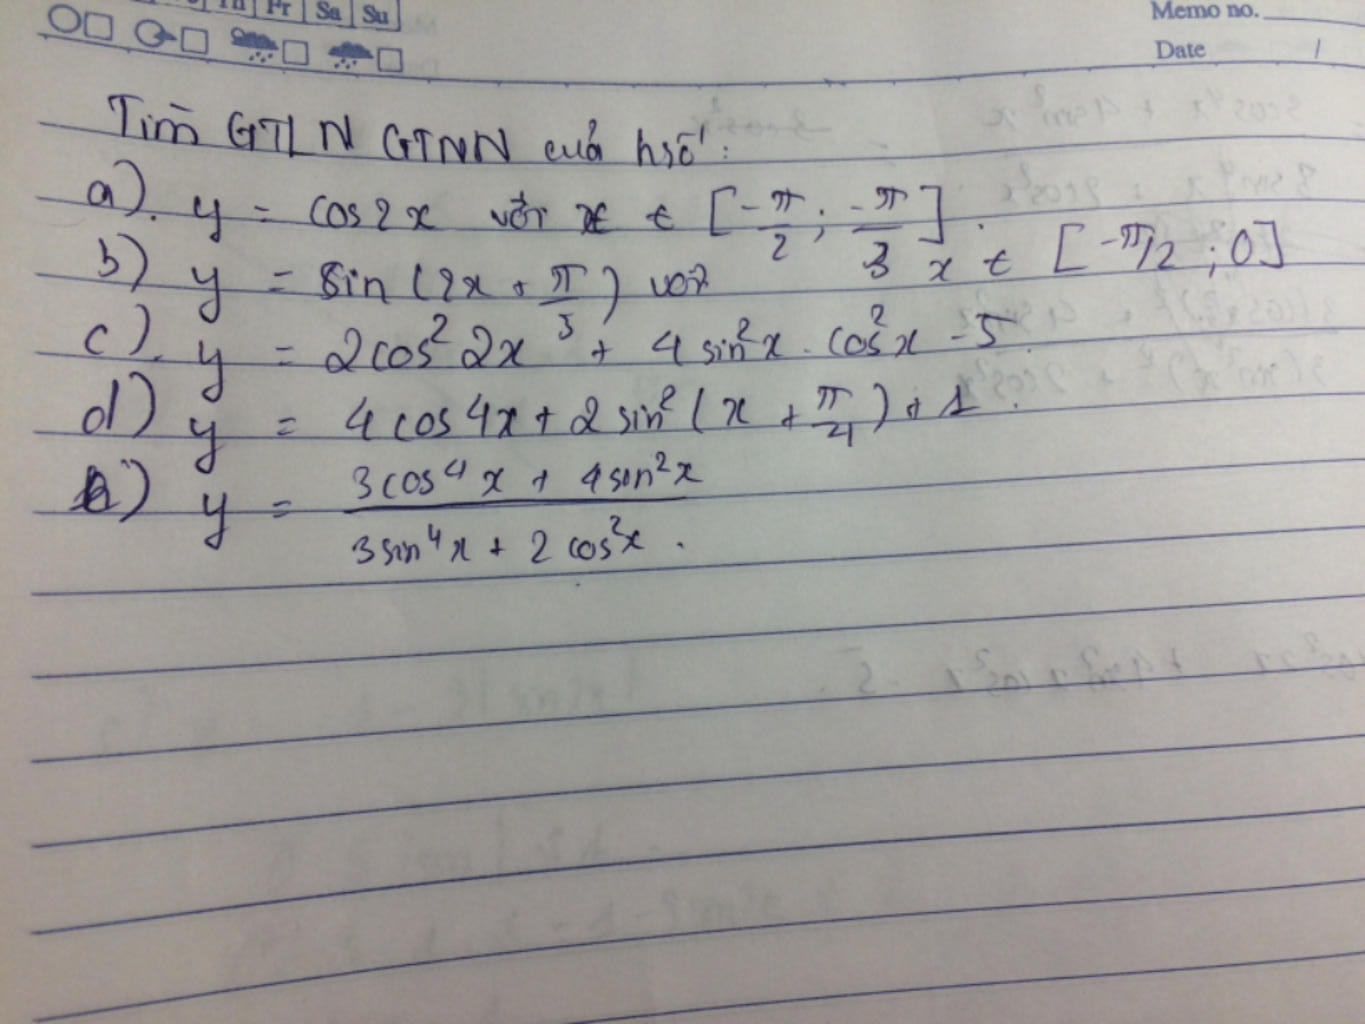 Th Fr Sa Su
Memo no.
Date /
Tìm GTLN GTNN của hsố:
a). y = cos2x với x ∈ [-π/2 ; -π/3].
b) y = sin (2x + π/3) với x ∈ [-π/2 ; 0]
c). y = 2cos² 2x + 4 sin²x . cos²x - 5.
d) y = 4 cos4x + 2 sin² (x + π/4) + 1.
e) y = (3cos⁴ x + 4sin²x) / (3sin⁴x + 2 cos²x).